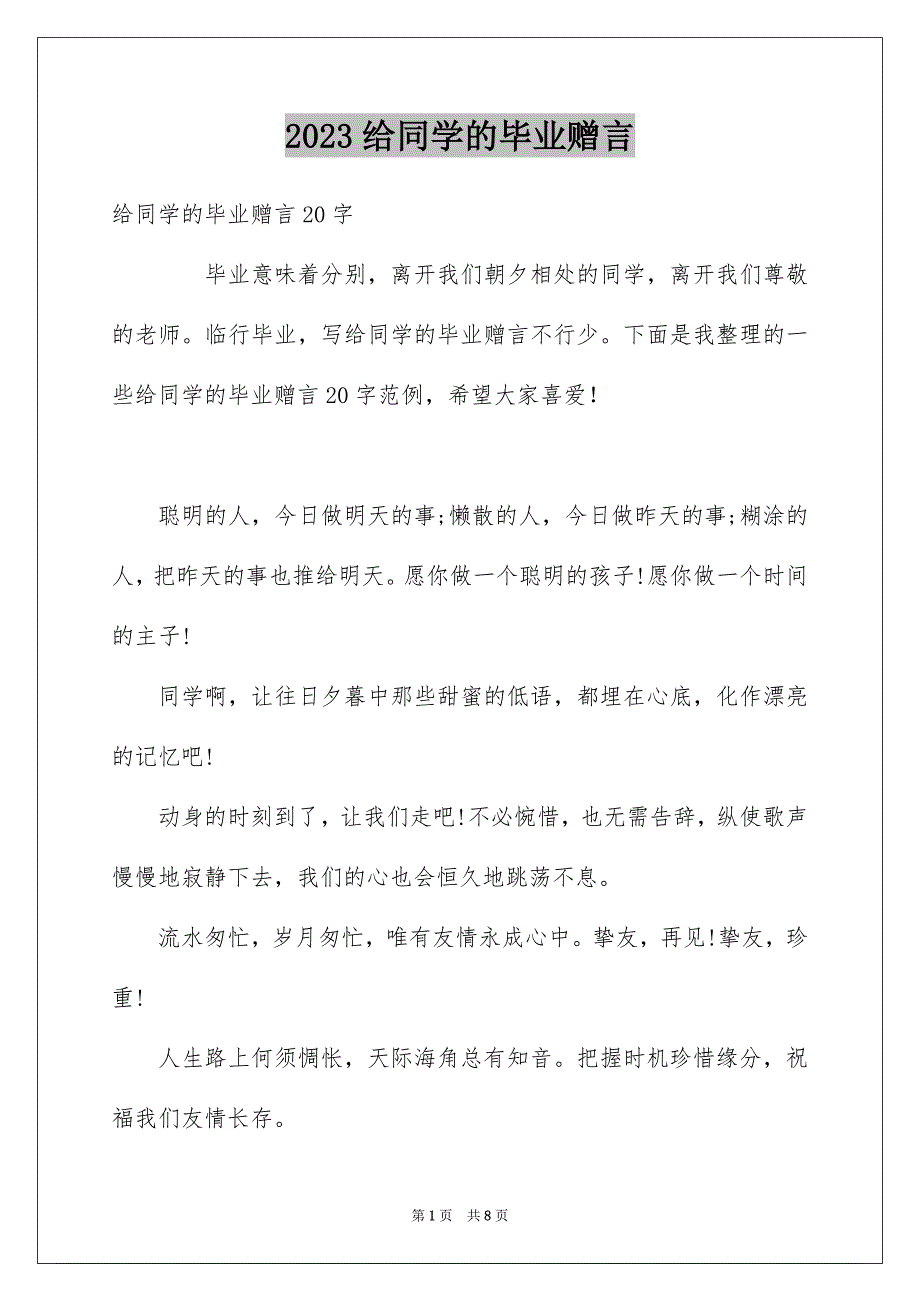 2023给同学的毕业赠言
给同学的毕业赠言20字
毕业意味着分别，离开我们朝夕相处的同学，离开我们尊敬
的老师。临行毕业，写给同学的毕业赠言不行少。下面是我整理的一
些给同学的毕业赠言20字范例，希望大家喜爱！
聪明的人，今日做明天的事;懒散的人，今日做昨天的事;糊涂的
人，把昨天的事也推给明天。愿你做一个聪明的孩子!愿你做一个时间
的主子!
同学啊，让往日夕暮中那些甜蜜的低语，都埋在心底，化作漂亮
的记忆吧!
动身的时刻到了，让我们走吧!不必惋惜，也无需告辞，纵使歌声
慢慢地寂静下去，我们的心也会恒久地跳荡不息。
流水匆忙，岁月匆忙，唯有友情永成心中。挚友，再见!挚友，珍
重!
人生路上何须惆怅，天际海角总有知音。把握时机珍惜缘分，祝
福我们友情长存。
第1页 共8页